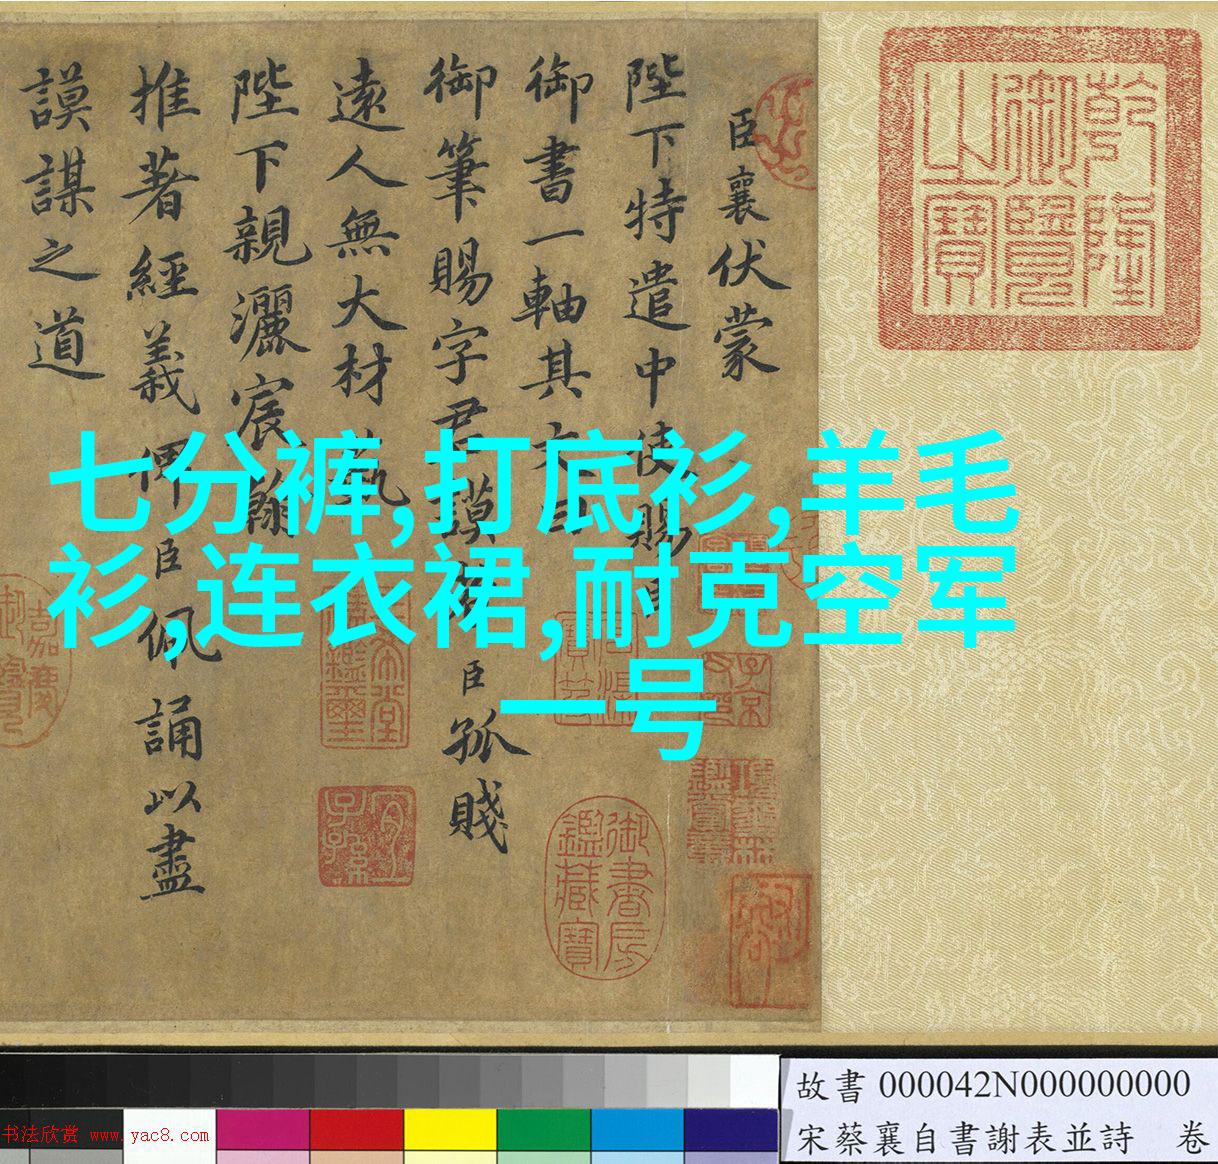 臣襄伏蒙
陛下特遣中使賜
御書一軸其文曰
御筆賜字君謨
臣孤賤
遠人無大材
陛下親灑宸翰
推著經義俾臣佩誦以盡
謨謀之道
乾隆
御覽
之寶
七分裤,打底衫,羊毛
衫,连衣裙,耐克空军
一号
御書房
鑑藏寶
子孫
故書 000042N000000000
宋蔡襄自書謝表並詩 卷
书法欣赏 www.yac8.com